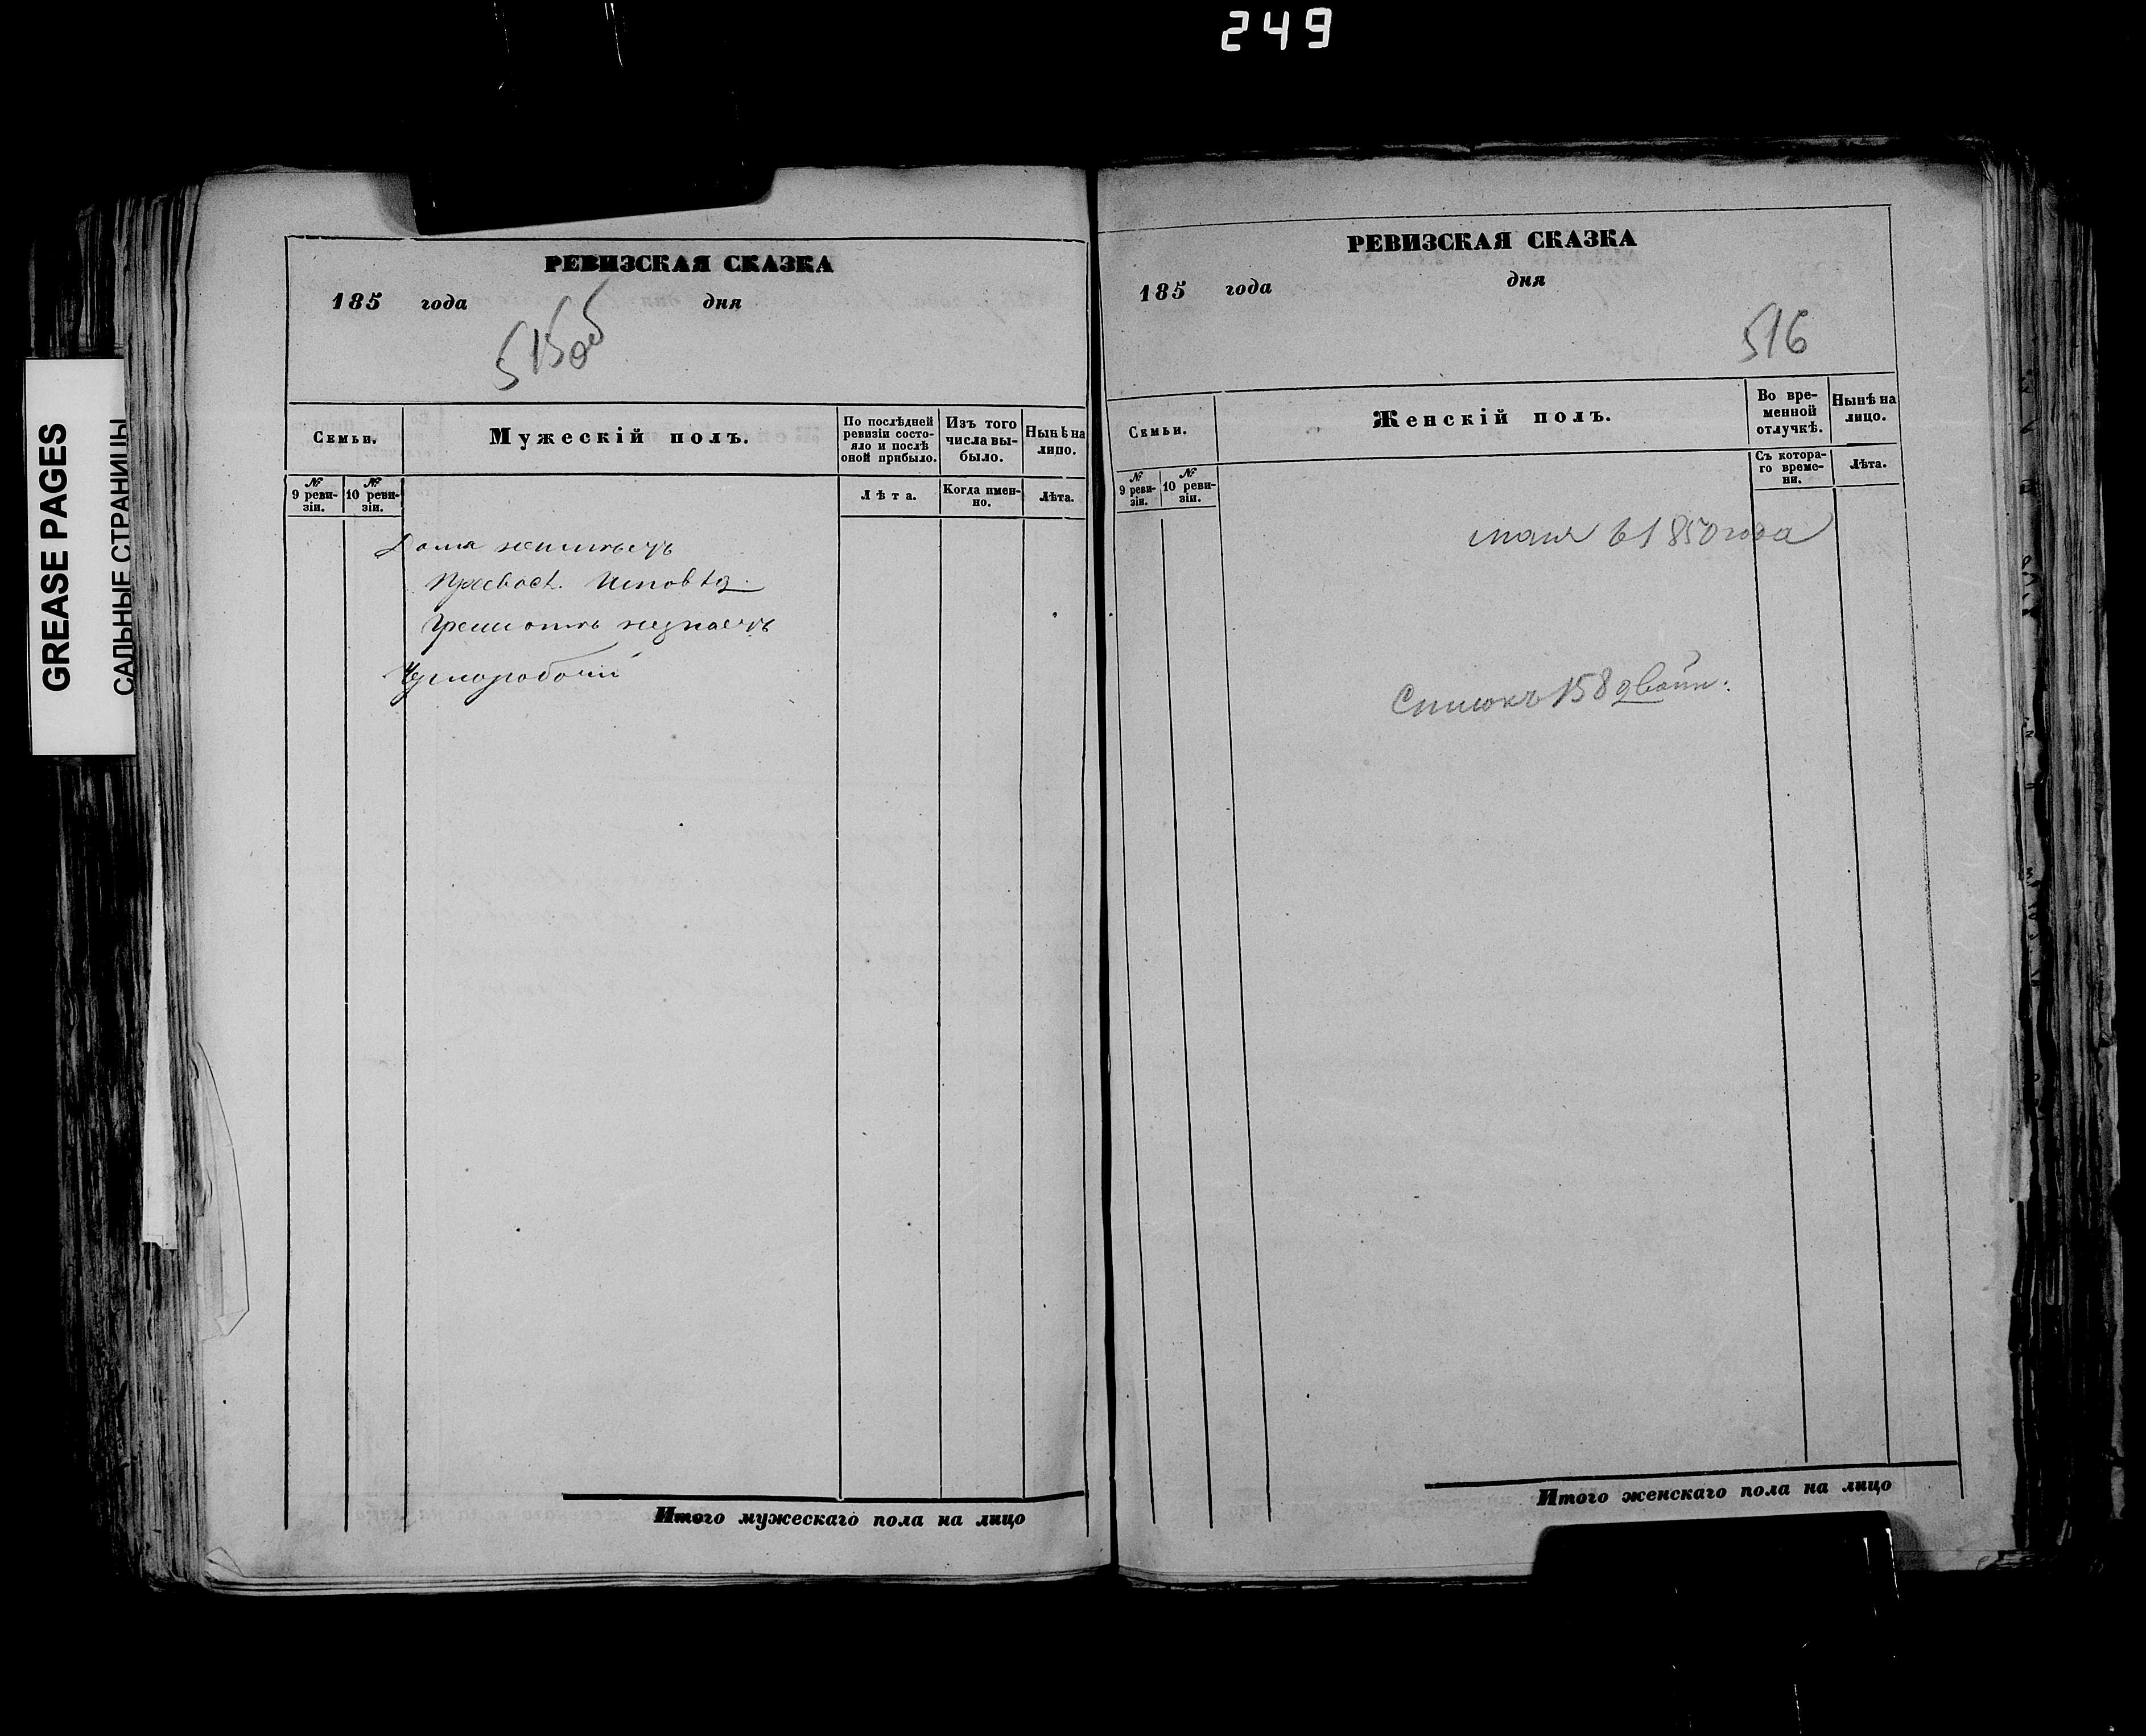 249
GREASE PAGES
САЛЬНЫЕ СТРАНИЦЫ
РЕВИЗСКАЯ СКАЗКА
185 года дня
515 об
Семьи.
Мужескій полъ.
По послѣдней ревизіи состо-
яло и послѣ
оной прибыло.
Изъ того
числа вы-
было.
Нынѣ на
лицо.
№
9 реви-
зіи.
№
10 реви-
зіи.
Лѣта.
Когда имен-
но.
Лѣта.
Дома
Правосл. Исповѣд.
Грамоты незнаетъ
Чернорабочій
Итого мужескаго пола на лицо
РЕВИЗСКАЯ СКАЗКА
185 года дня
516
Семьи.
Женскій полъ.
Во вре-
менной
отлучкѣ.
Нынѣ на
лицо.
№
9 реви-
зіи.
№
10 реви-
зіи.
Съ котора-
го време-
ни.
Лѣта.
1850 года
Списокъ 158
Итого женскаго пола на лицо